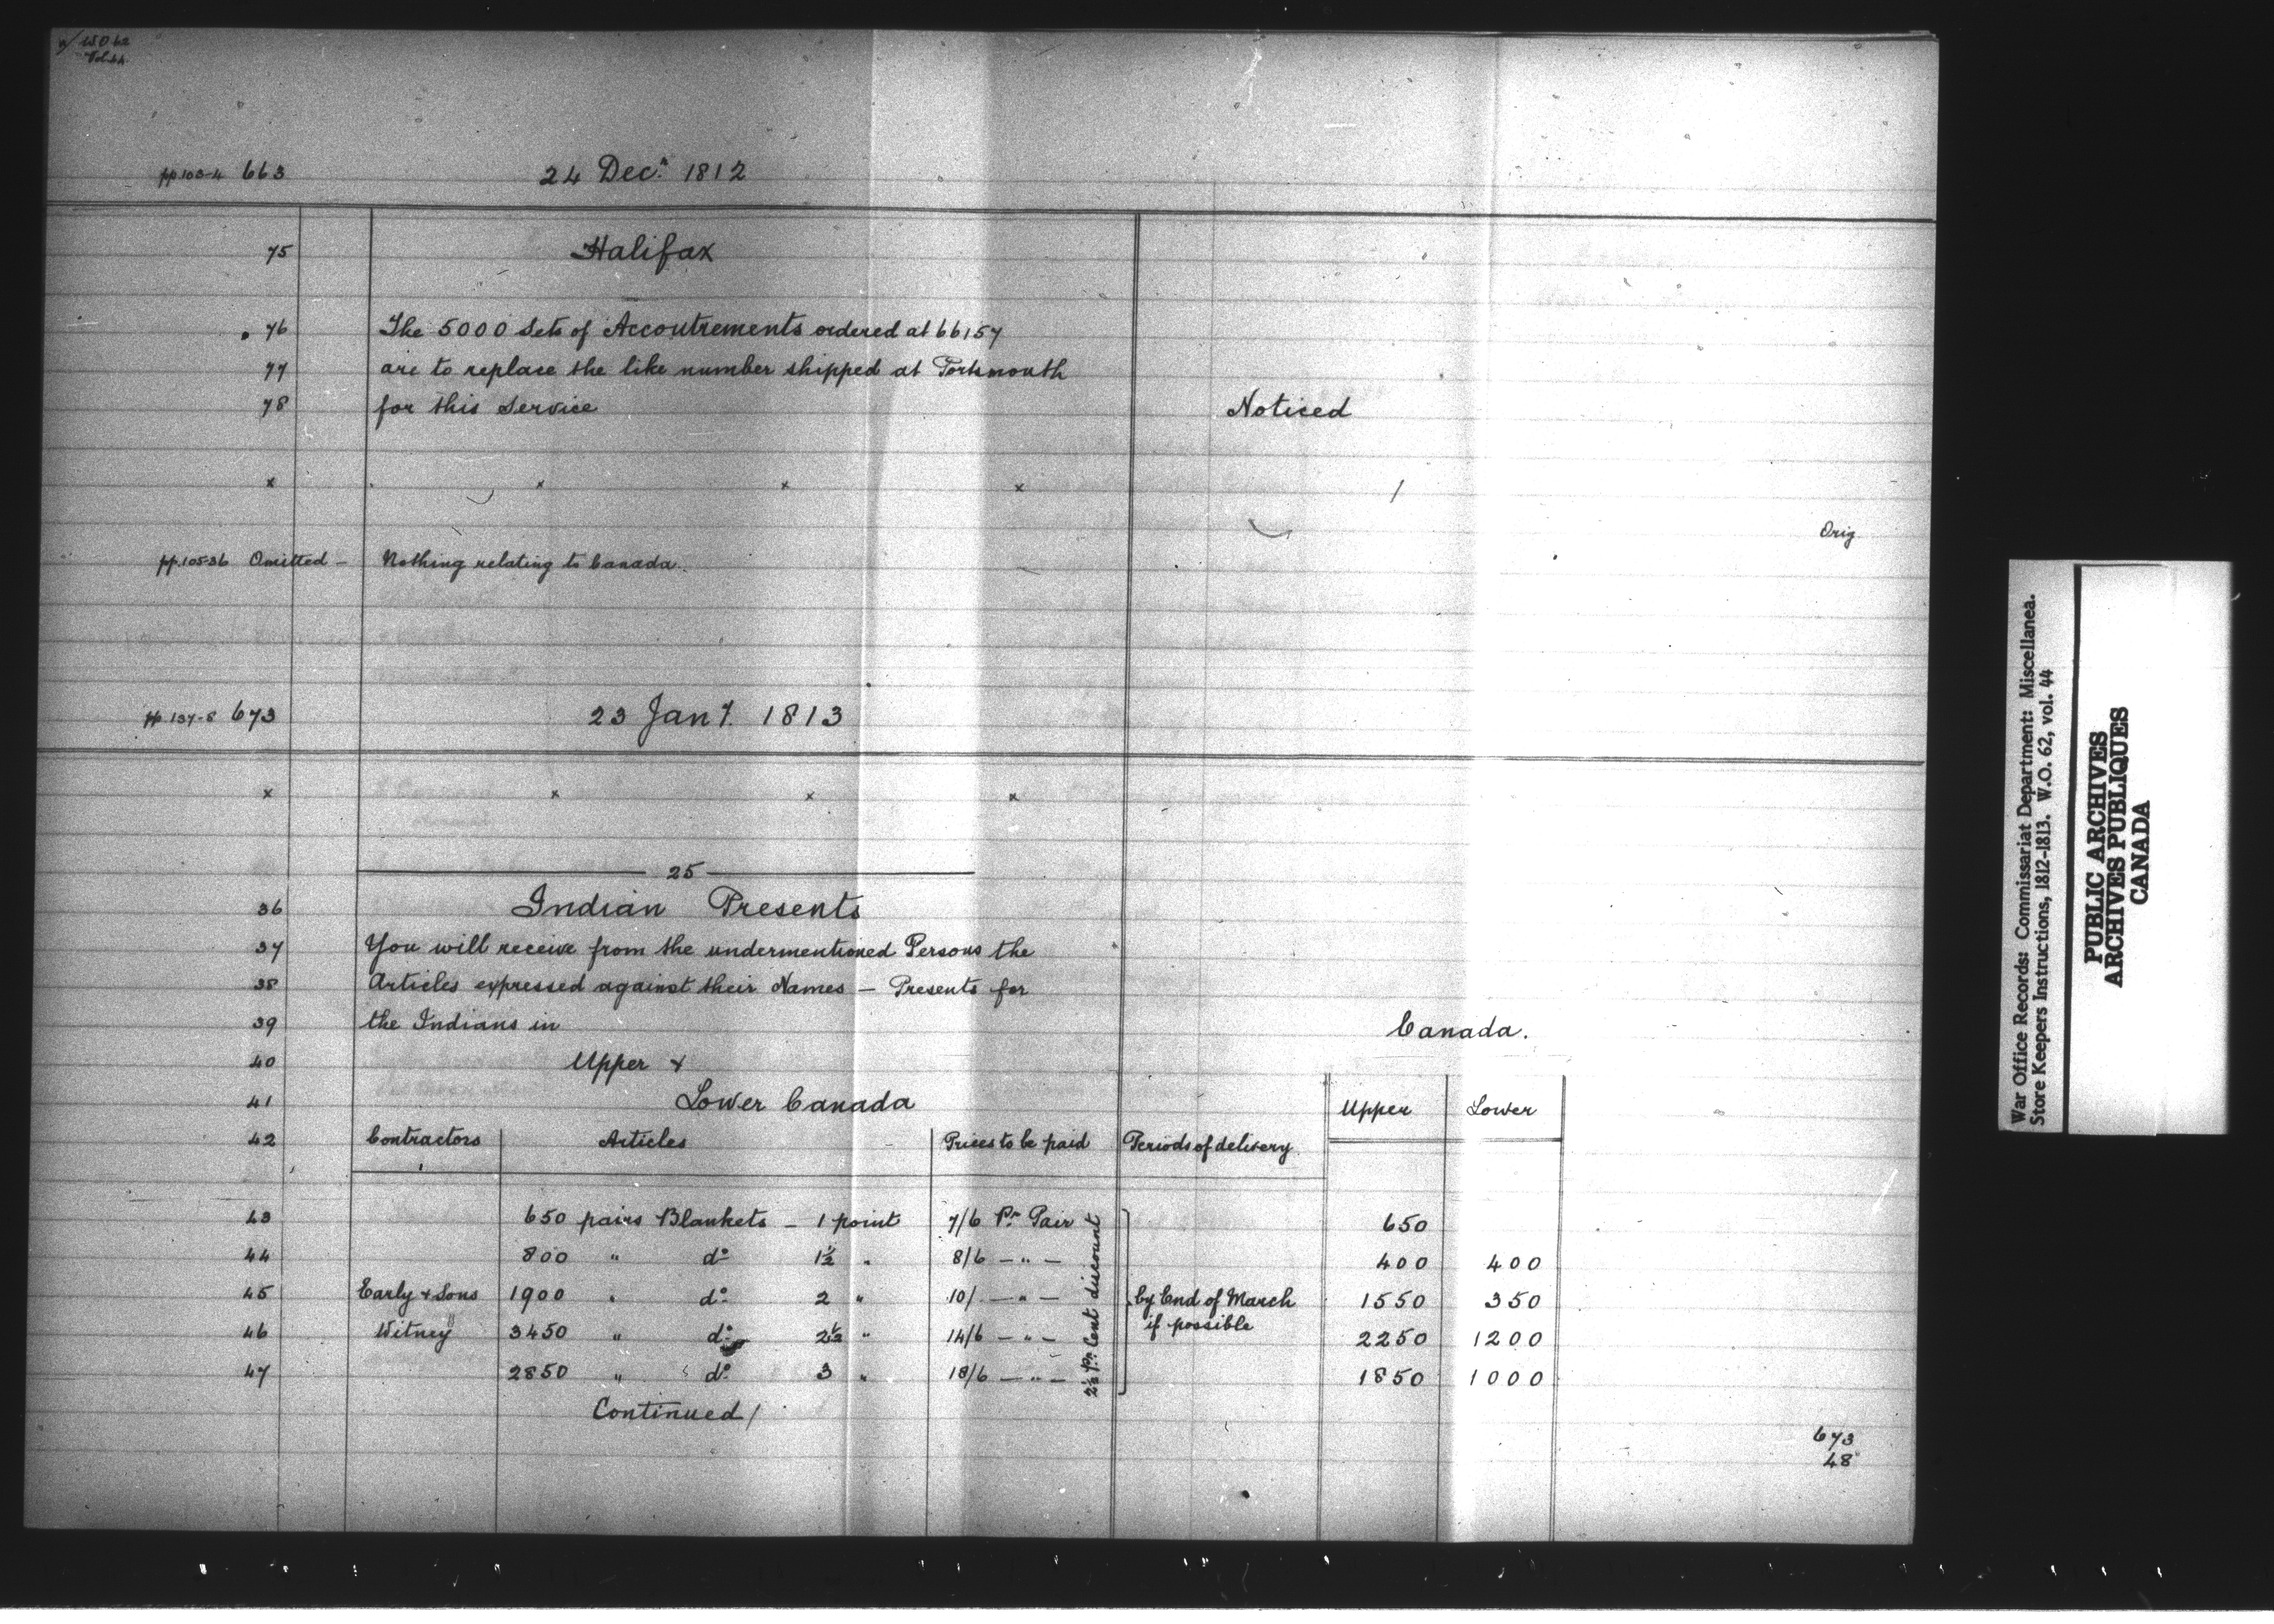 W.O 62
Vol 44
pp.103-4 663 24 Decr. 1812
75 Halifax
76 The 5000 Sets of Accoutrements ordered at 66157
77 are to replace the like number shipped at Portsmouth
78 for this Service Noticed
x x x x /
Orig
pp.105-36 Omitted - Nothing relating to Canada.
pp.137-8 673 23 Jany. 1813
x x x x
25
36 Indian Presents
37 You will receive from the undermentioned Persons the
38 Articles expressed against their Names - Presents for
39 the Indians in Canada.
40 Upper &
41 Lower Canada Upper Lower
42 Contractors Articles Prices to be paid Periods of delivery
43 650 pairs Blankets - 1 point 7/6 Pr. Pair 650
44 800 " do 1½ " 8/6 - " - 400 400
45 Early & Sons 1900 " do 2 " 10/ - " - by End of March 1550 350
if possible
46 Witney 3450 " do 2½ " 14/6 - " - 2250 1200
47 2850 " do 3 " 18/6 - " - 1850 1000
2½ Pr. Cent discount
Continued/
673
48
War Office Records: Commissariat Department: Miscellanea.
Store Keepers Instructions, 1812-1813. W.O. 62, vol. 44
PUBLIC ARCHIVES
ARCHIVES PUBLIQUES
CANADA